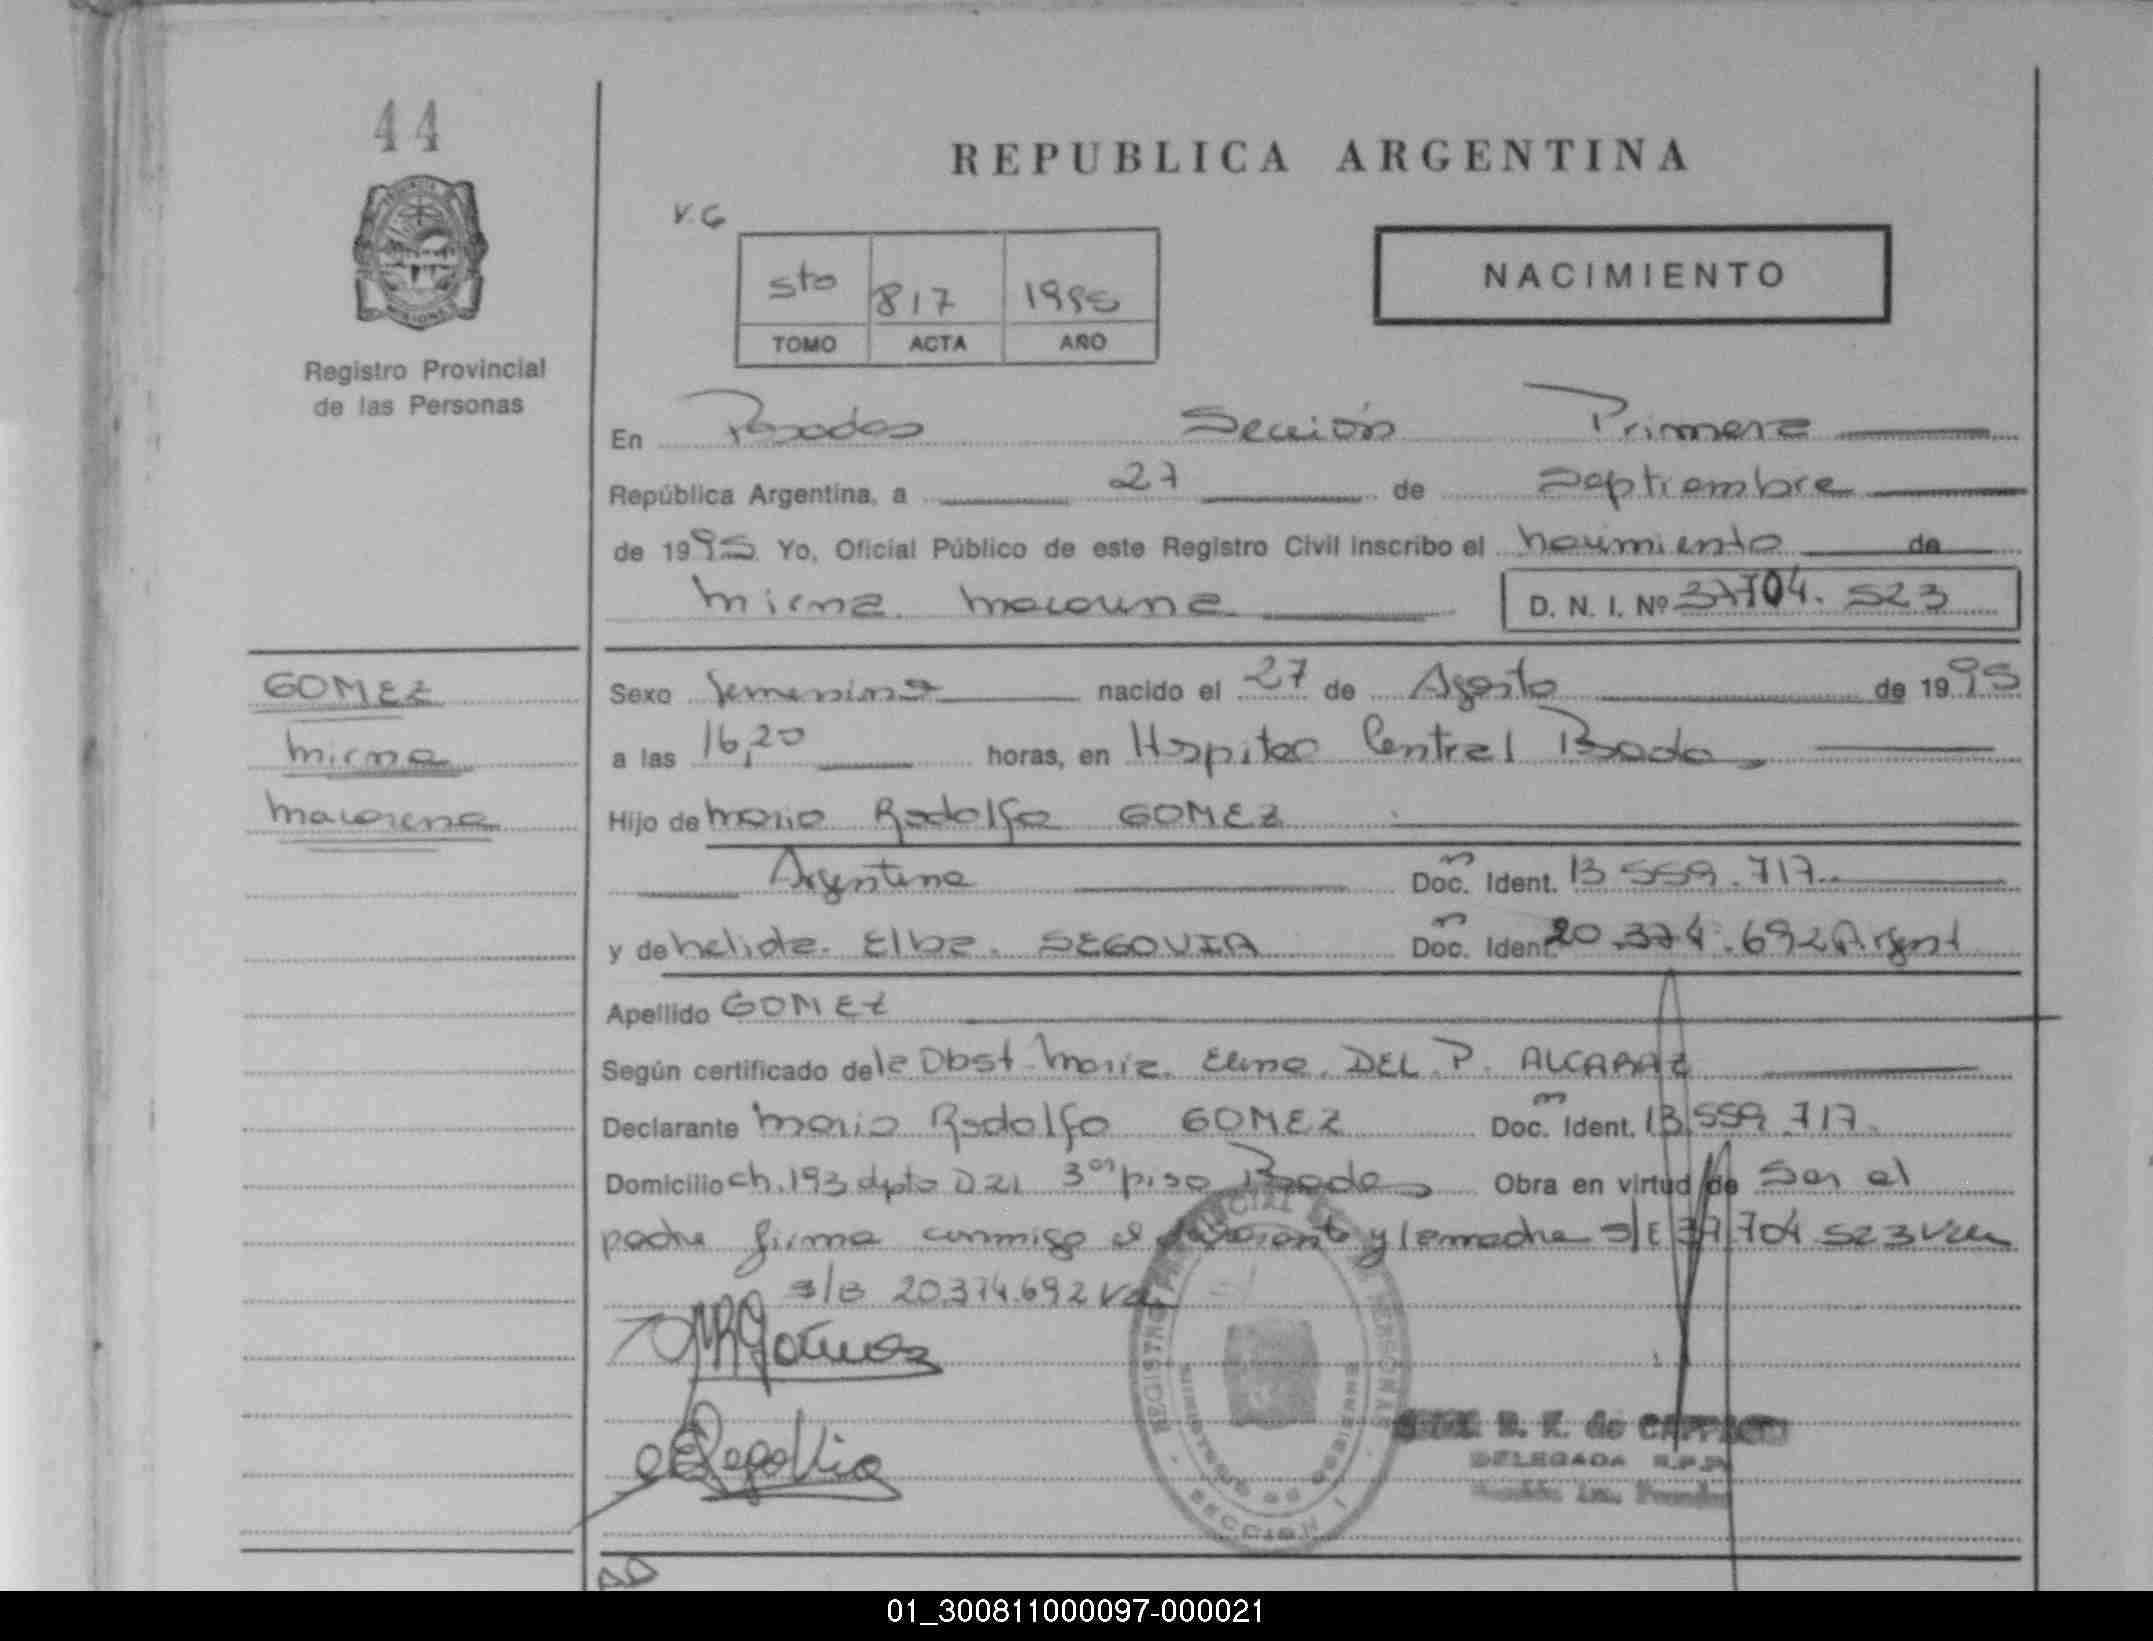 44
REPUBLICA ARGENTINA
V.G
sto 817 1995
TOMO ACTA AÑO
NACIMIENTO
Registro Provincial
de las Personas
En Posadas Sección Primera
República Argentina, a 27 de Septiembre
de 1995 Yo, Oficial Público de este Registro Civil inscribo el nacimiento de
Mirna Macarena D. N. I. Nº 37704.523
GOMEZ
Mirna
Macarena
Sexo femenino nacido el 27 de Agosto de 1995
a las 16,20 horas, en Hospital Central Posadas
Hijo de Mario Rodolfo GOMEZ
Argentino Doc. Ident. 13 559.717
y de Nelida Elba SEGOVIA Doc. Ident 20.374.692 Argent
Apellido GOMEZ
Según certificado de la Obst. Maria Elena DEL P. ALCARAZ
Declarante Mario Rodolfo GOMEZ Doc. Ident. 13 559 717
Domicilio ch. 193 dpto D21 3er piso Posadas Obra en virtud de Ser el
padre firma conmigo el declarante y la madre S/E 37 704 523 Vale
S/B 20.374.692 Vale
MRGomez
ESegovia
REGISTRO PROVINCIAL DE LAS PERSONAS
MINISTERIO DE GOBIERNO
SECCION I
DELEGADA R.P.P.
01_300811000097-000021